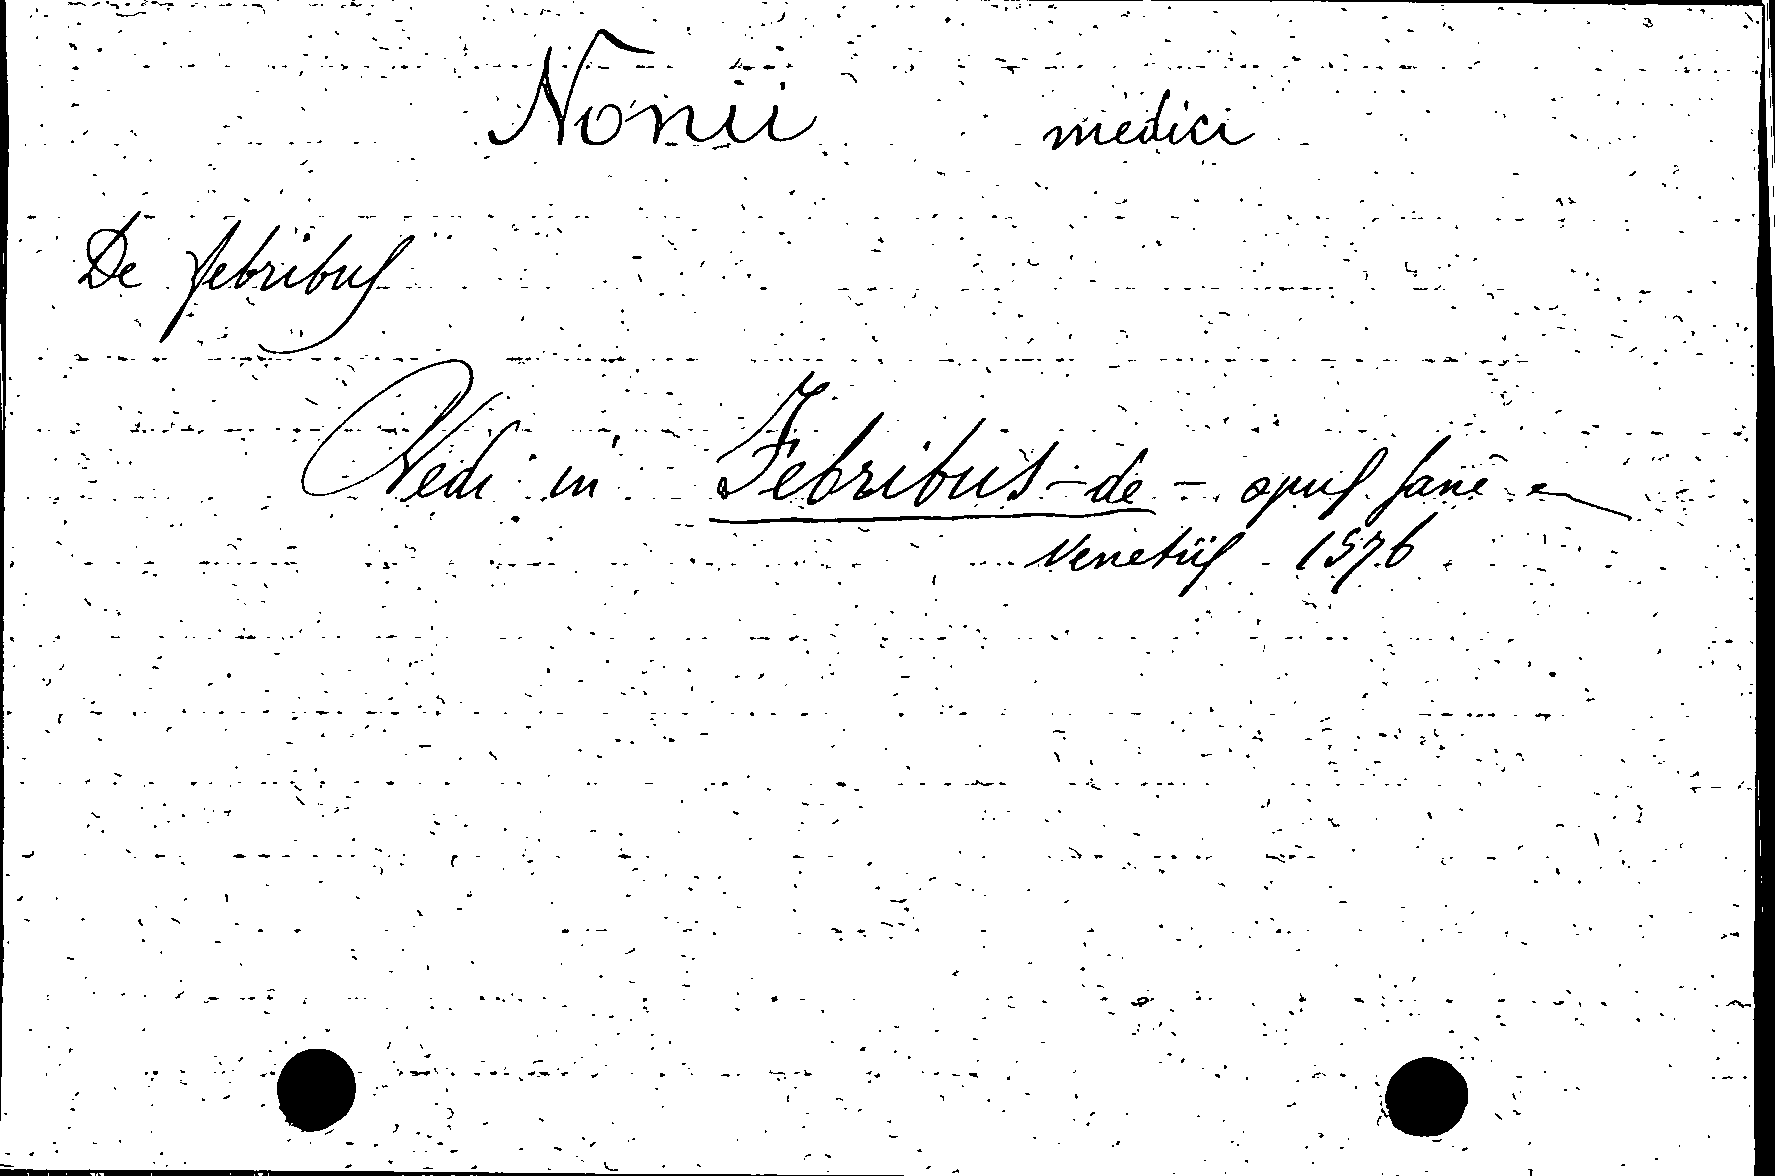 Nonii medici
De febribus
Vedi in Febribus-de - opus sane
Venetiis 1576